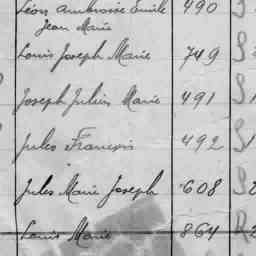 Léon Ambroise Emile 490 S
Jean Marie
Louis Joseph Marie 749 S
Joseph Julien Marie 491 S 1
Jules François 492 S 1
Jules Marie Joseph 608 S 2
Louis Marie 864 R 2